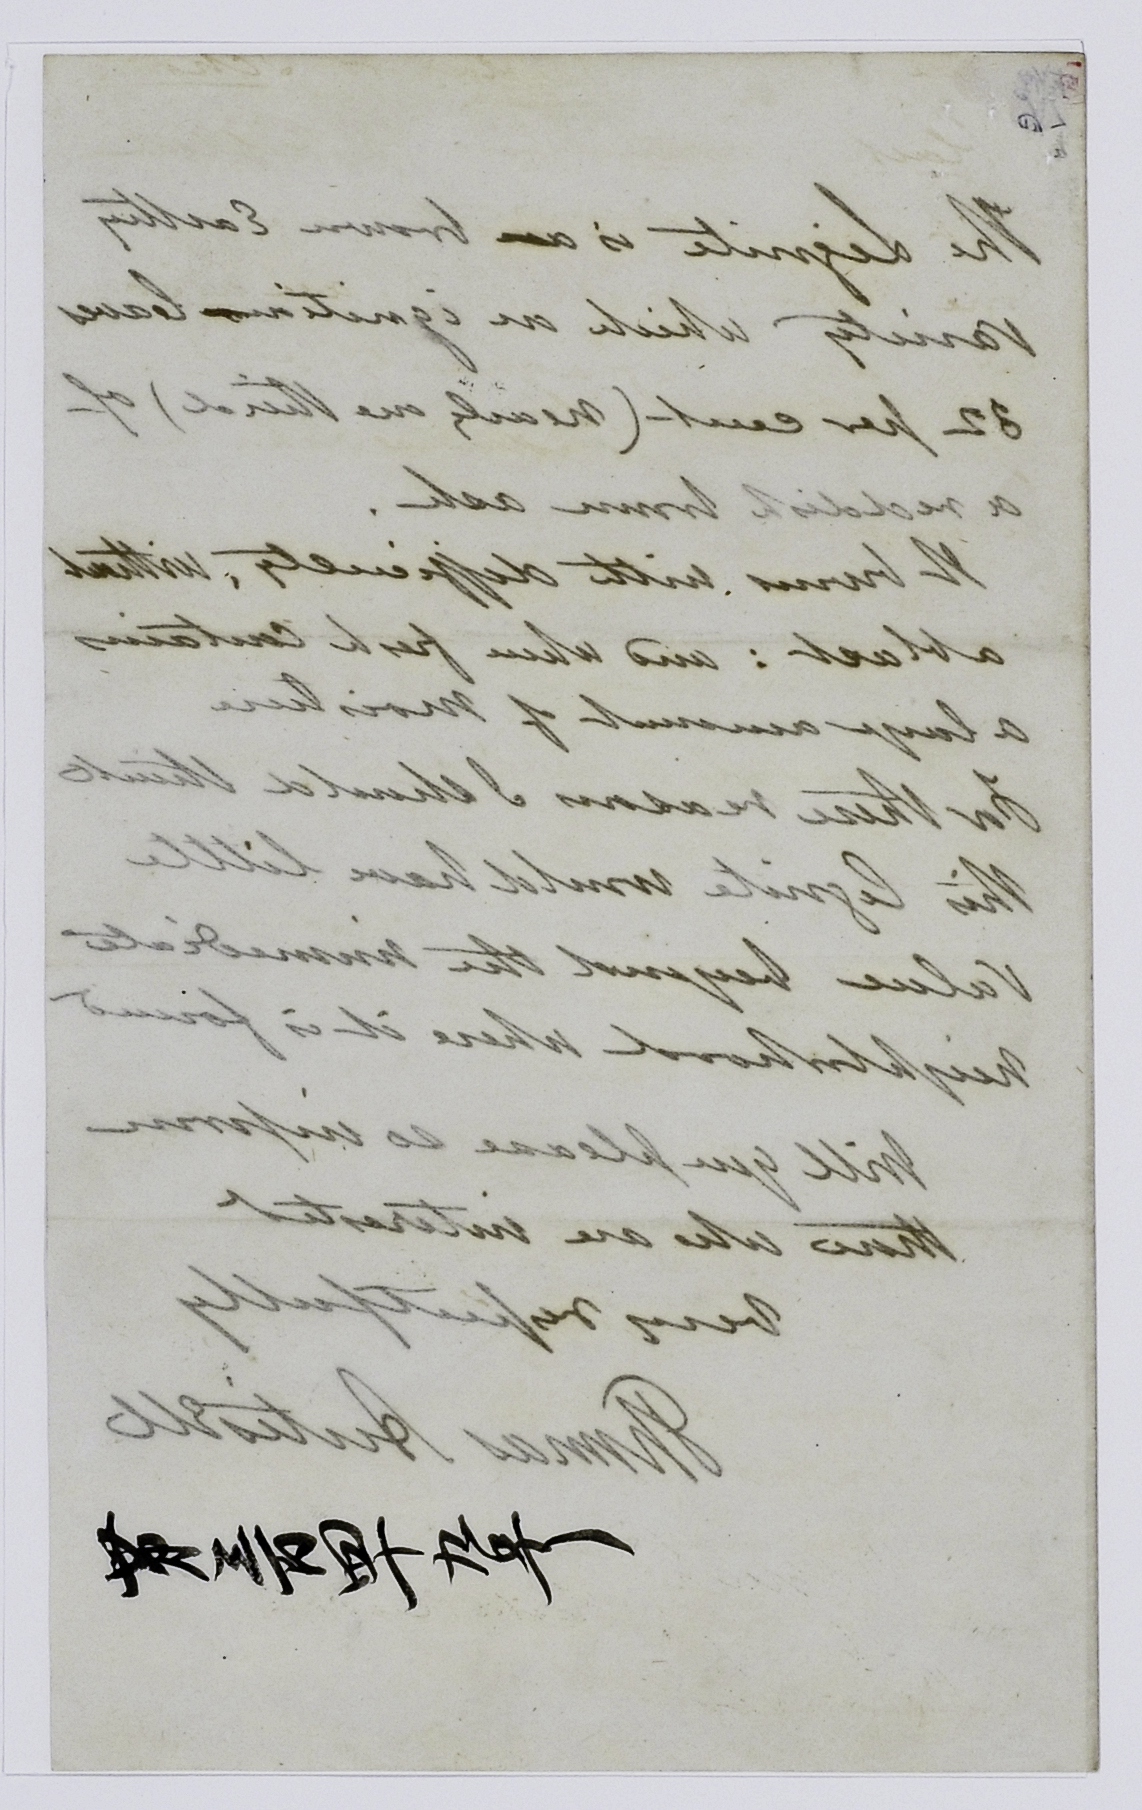 The Lignite is a brown Earthy
variety which on ignition leaves
32 per cent (nearly one third) of
a reddish brown ash.
It burns with difficulty, without
a blast: and when fresh contains
a large amount of moisture
For these reasons I should think
this lignite would have little
value beyond the immediate
neighborhood where it is found
Will you please so inform
those who are interested
Very respectfully
Thomas Antisell